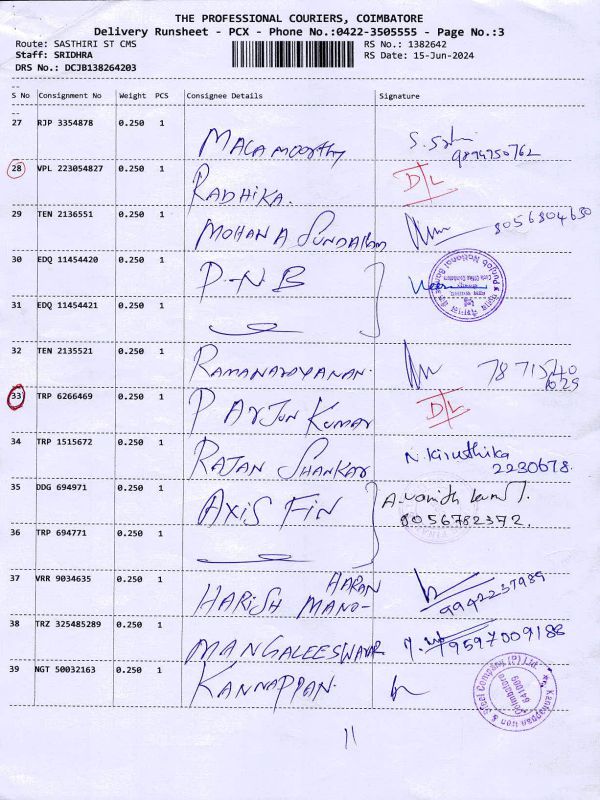 THE PROFESSIONAL COURIERS, COIMBATORE
Delivery Runsheet - PCX - Phone No.:0422-3505555 - Page No.:3
Route: SASTHIRI ST CMS RS No.: 1382642
Staff: SRIDHRA RS Date: 15-Jun-2024
DRS No.: DCJB138264203
S No Consignment No Weight PCS Consignee Details Signature
27 RJP 3354878 0.250 1 MALA MOORTHY
28 VPL 223054827 0.250 1 RADHIKA. D/L
29 TEN 2136551 0.250 1 MOHANA SUNDARAM 8056304650
30 EDQ 11454420 0.250 1 P-N-B
31 EDQ 11454421 0.250 1
32 TEN 2135521 0.250 1 RAMANARAYANAN. 78 71540
1629
33 TRP 6266469 0.250 1 P ARJUN KUMAR D/L
34 TRP 1515672 0.250 1 RAJAN SHANKAR N. Kiruthika
2230678.
35 DDG 694971 0.250 1 AXIS FIN
8056782372.
36 TRP 694771 0.250 1
37 VRR 9034635 0.250 1 HARISH MANO-
HARAN
9942237989
38 TRZ 325485289 0.250 1 MANGALEESWARR 9597009188
39 NGT 50032163 0.250 1 KANNAPPAN.
Kannappan Iron & Steel Company (P) Ltd.
Coimbatore
641009
11